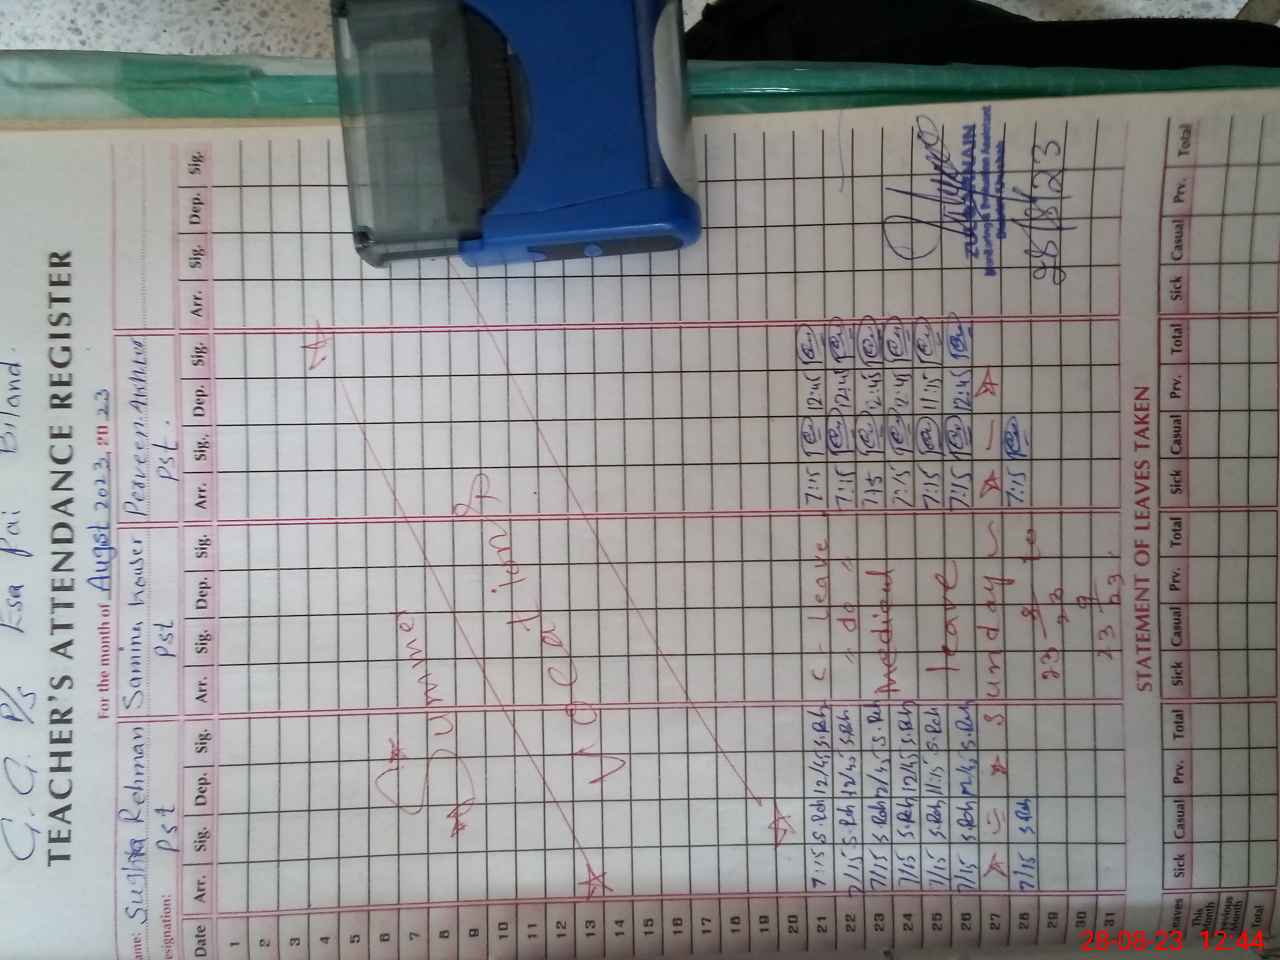 G. G. P/S Esa Pai Biland.
TEACHER'S ATTENDANCE REGISTER
For the month of August 2023. 2023
ame: Rehman Samina Kouser Perveen Akhtar
esignation: Pst Pst Pst.
Date Arr. Sig. Dep. Sig. Arr. Sig. Dep. Sig. Arr. Sig. Dep. Sig. Arr. Sig. Dep. Sig.
1
2
3
4
5
6
7
8
9
10
11
12
13
14
15
16
17
18
19
20
Summer
Vocations
21 7:15 S.Reh 12/45 S.Reh C. Leave 7:15 12:45
22 7/15 S.Reh 12/45 S.Reh " do " 7:15 12:45
23 7/15 S.Reh 12/45 S.Reh medical 7:15 12:45
24 7/15 S.Reh 12/45 S.Reh 7:15 12:45
25 7/15 S.Reh 11:15 S.Reh leave 7:15 11:15
26 7/15 S.Reh 12/45 S.Reh 7:15 12:45
27 Sunday
28 7/15 S.Reh 23 8 to 7:15
29 23
30 9
31 23 23.
Monitoring & Evaluation Assistant
28/8/23
STATEMENT OF LEAVES TAKEN
eaves Sick Casual Prv. Total Sick Casual Prv. Total Sick Casual Prv. Total Sick Casual Prv. Total
This Month
Previous Month
Total
28-08-23 12:44